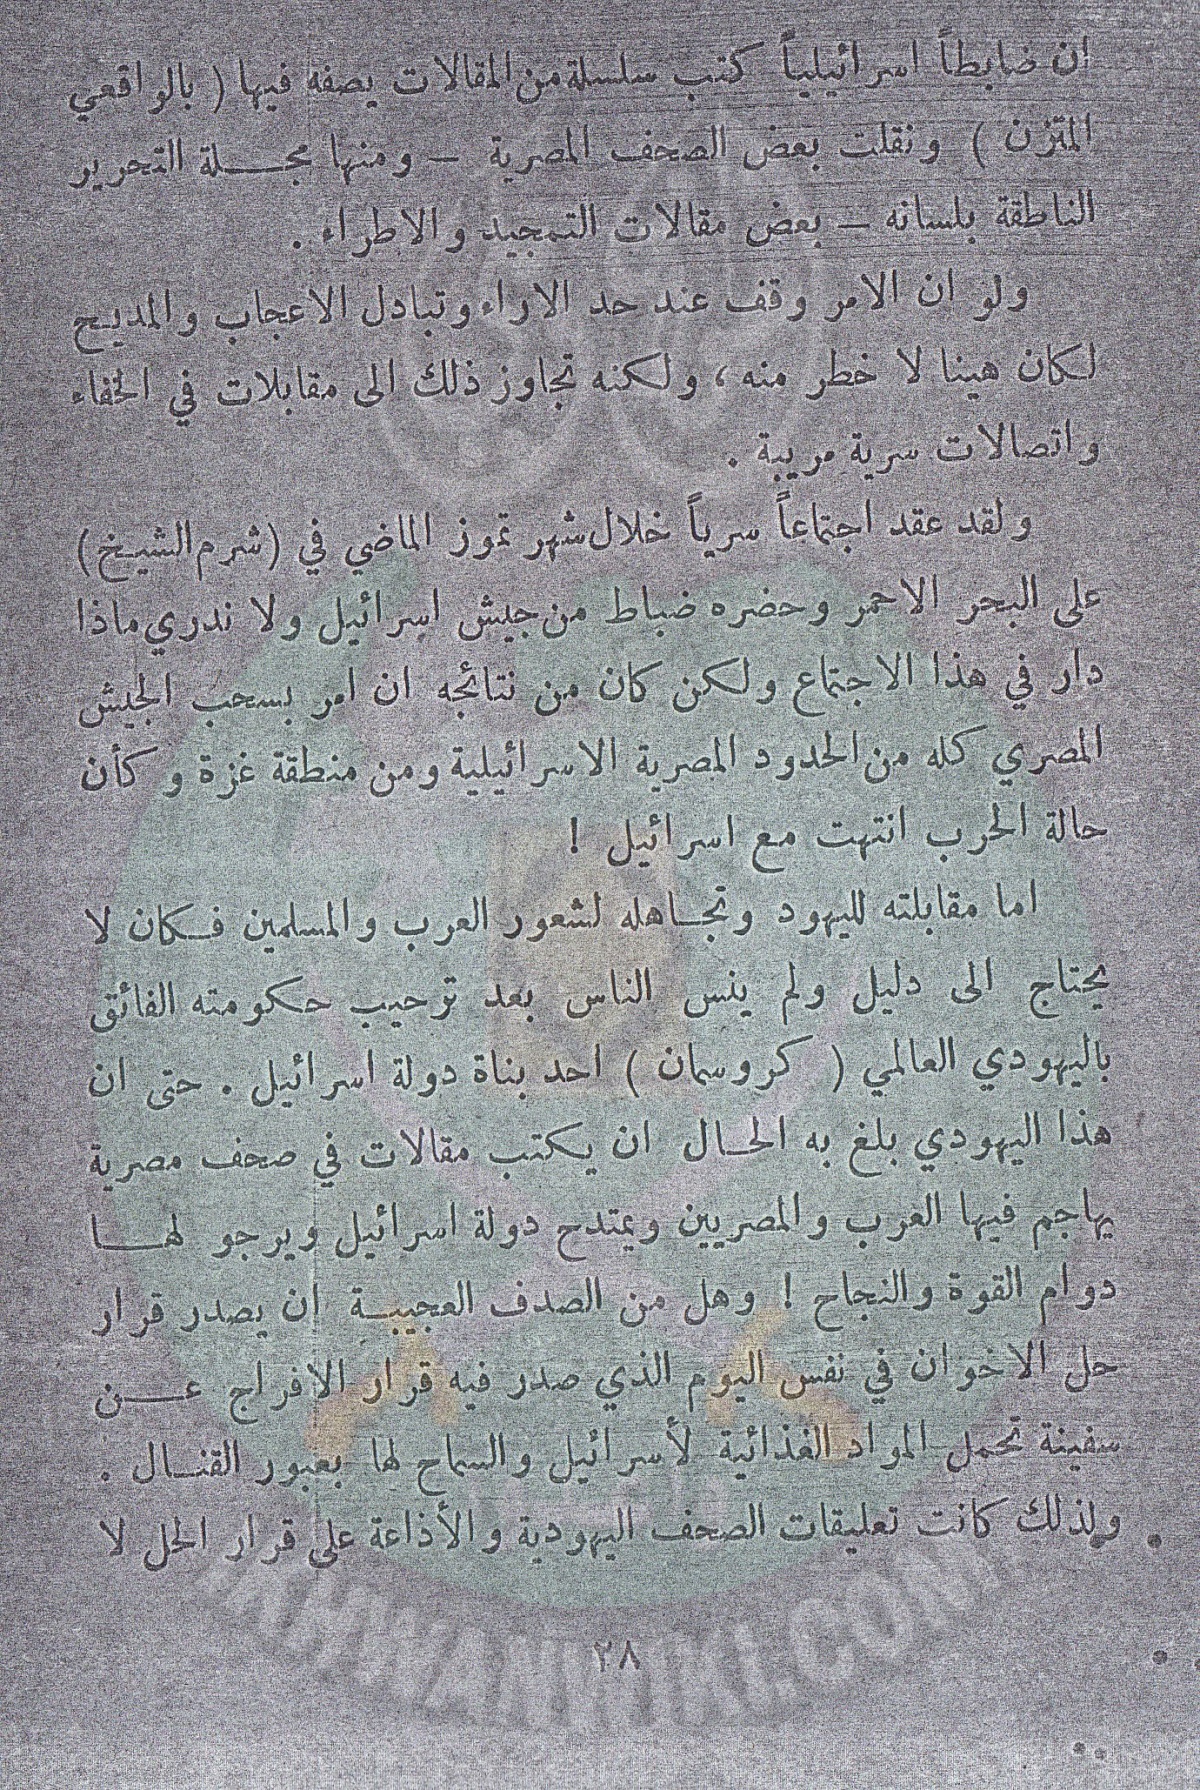 ان ضابطاً اسرائيلياً كتب سلسلة من المقالات يصفه فيها ( بالواقعي
المتزن ) ونقلت بعض الصحف المصرية – ومنها مجلة التحرير
الناطقة بلسانه – بعض مقالات التمجيد والاطراء .
ولو ان الامر وقف عند حد الاراء وتبادل الاعجاب والمديح
لكان هينا لا خطر منه ، ولكنه تجاوز ذلك الى مقابلات في الخفاء
واتصالات سرية مريبة .
ولقد عقد اجتماعاً سرياً خلال شهر تموز الماضي في (شرم الشيخ)
على البحر الاحمر وحضره ضباط من جيش اسرائيل ولا ندري ماذا
دار في هذا الاجتماع ولكن كان من نتائجه ان امر بسحب الجيش
المصري كله من الحدود المصرية الاسرائيلية ومن منطقة غزة و كأن
حالة الحرب انتهت مع اسرائيل !
اما مقابلته لليهود وتجاهله لشعور العرب والمسلمين فكان لا
يحتاج الى دليل ولم ينس الناس بعد ترحيب حكومته الفائق
باليهودي العالمي ( كروسمان ) احد بناة دولة اسرائيل . حتى ان
هذا اليهودي بلغ به الحال ان يكتب مقالات في صحف مصرية
يهاجم فيها العرب والمصريين ويمتدح دولة اسرائيل ويرجو لها
دوام القوة والنجاح ! وهل من الصدف العجيبة ان يصدر قرار
حل الاخوان في نفس اليوم الذي صدر فيه قرار الافراج عن
سفينة تحمل المواد الغذائية لأسرائيل والسماح لها بعبور القنال .
ولذلك كانت تعليقات الصحف اليهودية والأذاعة على قرار الحل لا
٢٨
IKHWANWIKI.COM